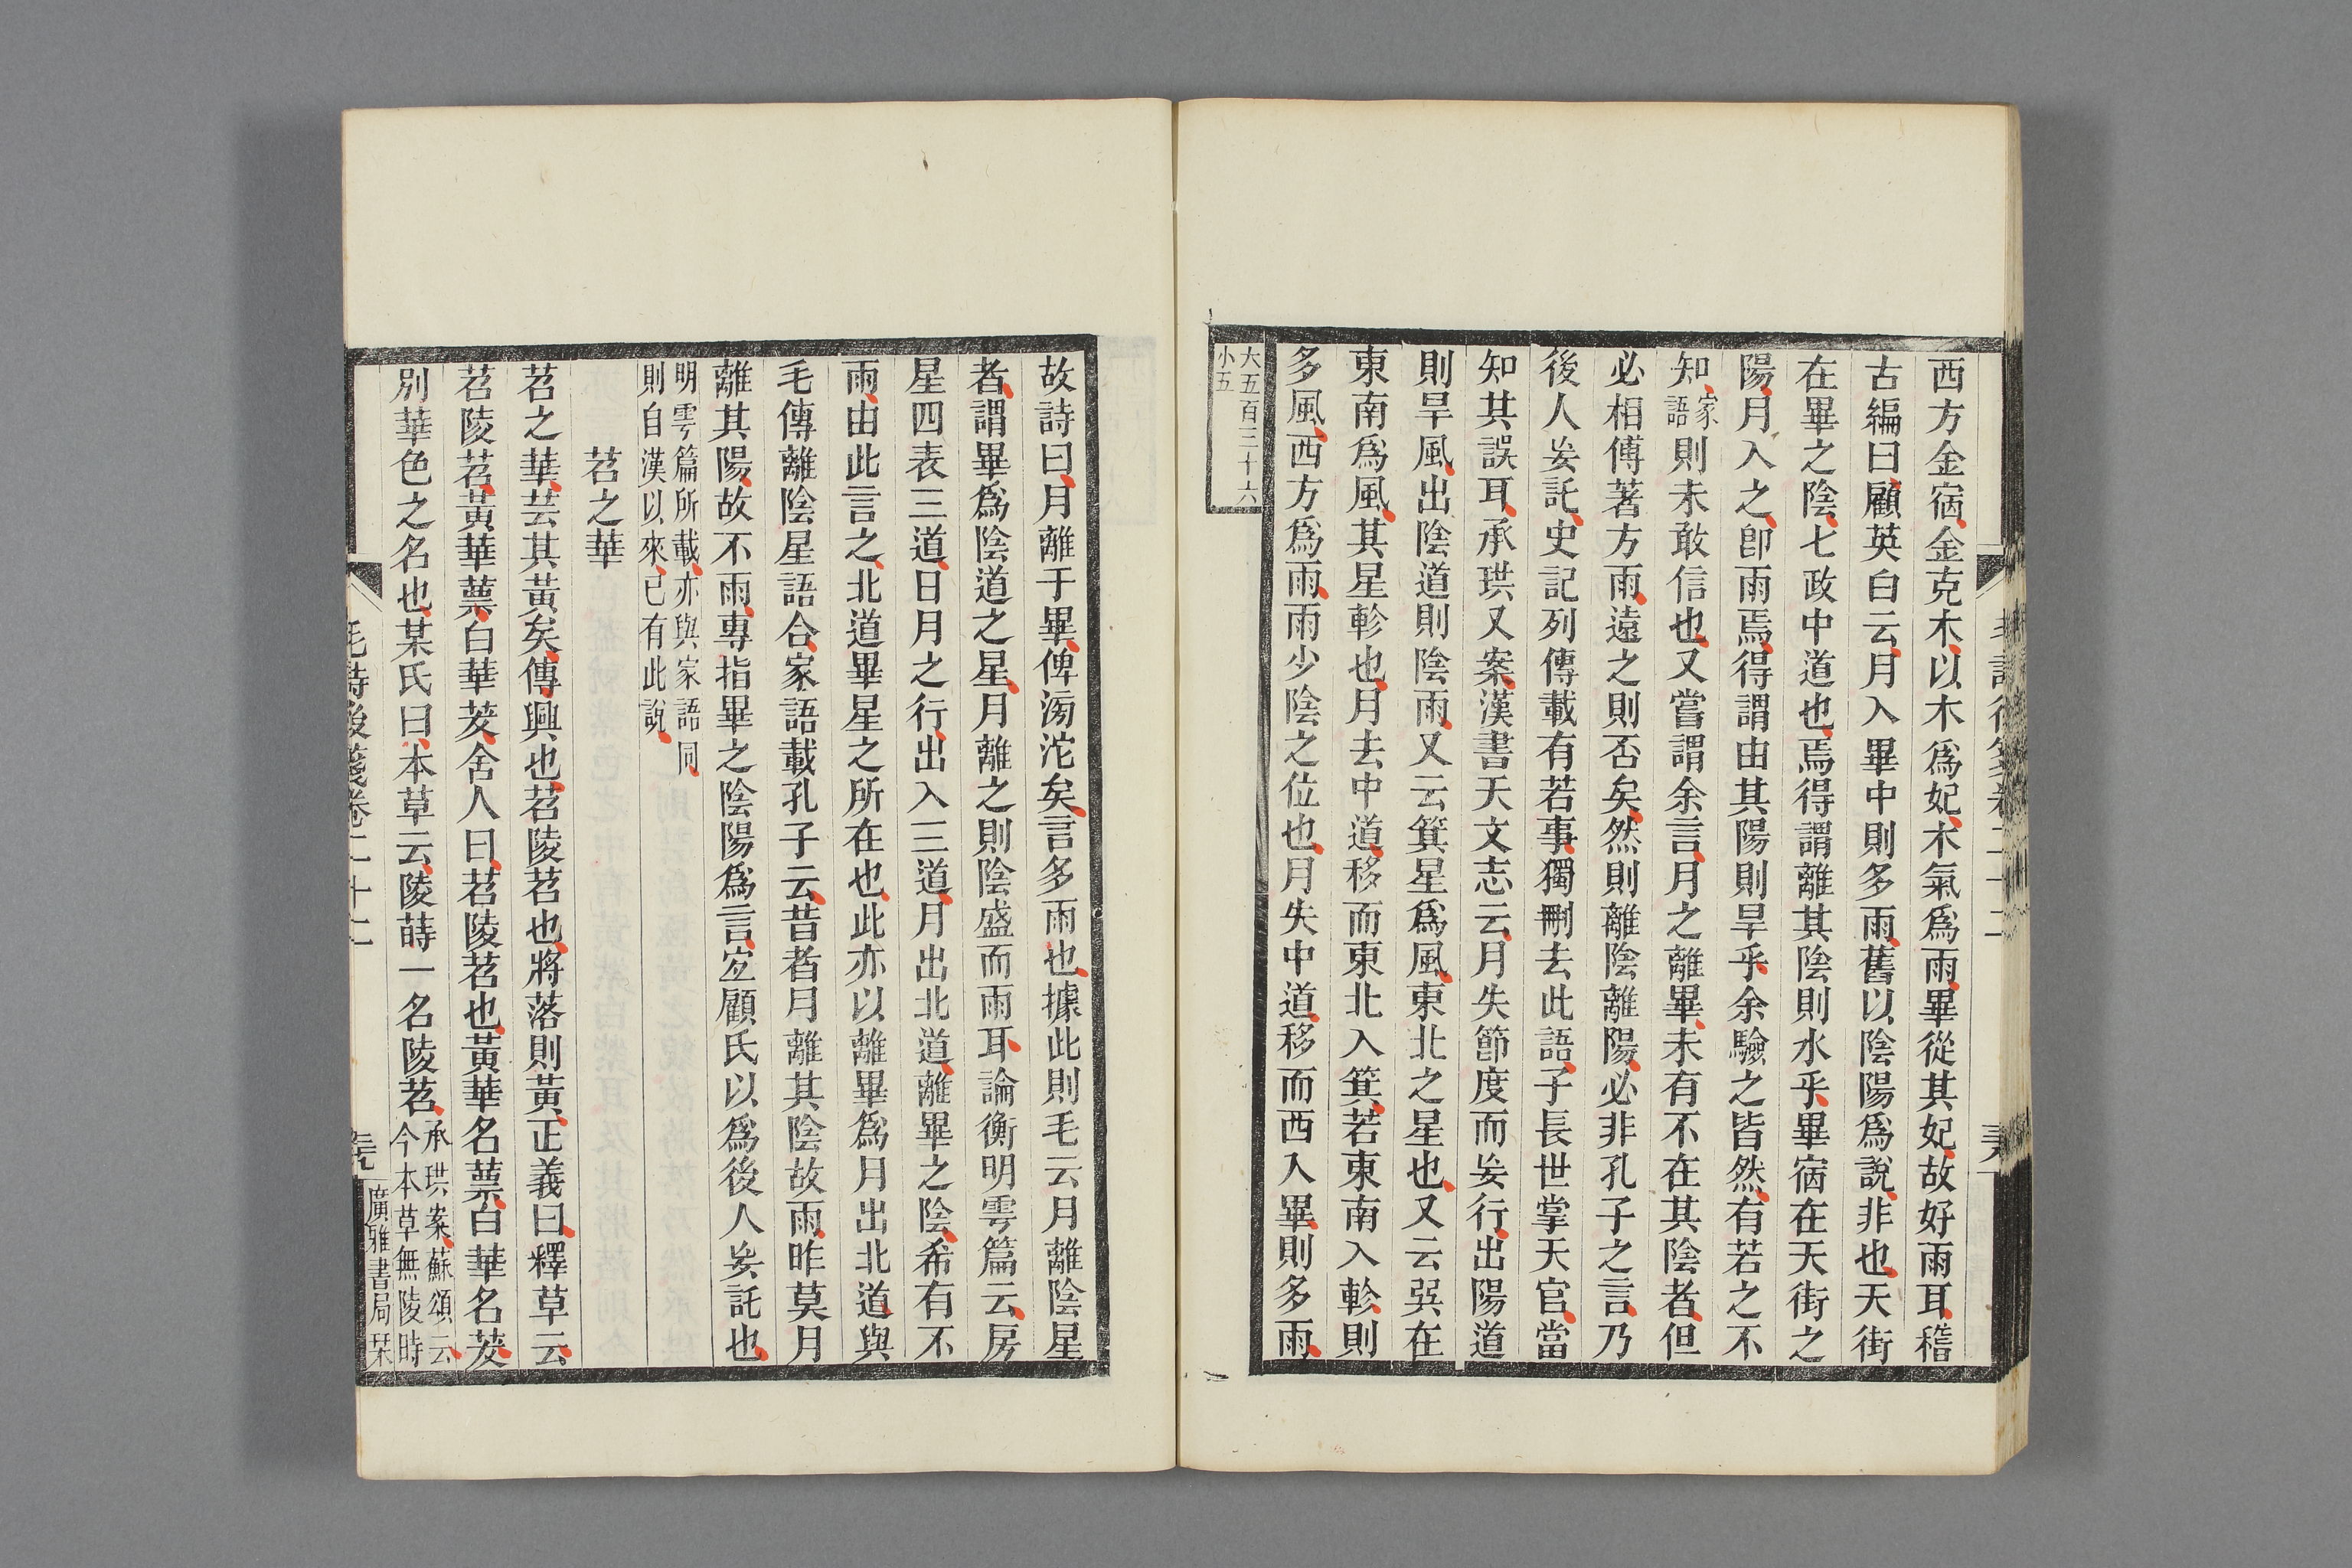 西方金宿金克木以木爲妃木氣爲雨畢從其妃故好雨耳稽
古編曰顧英白云月入畢中則多雨舊以陰陽爲說非也天街
在畢之陰七政中道也焉得謂離其陰則水乎畢宿在天街之
陽月入之卽雨焉得謂由其陽則旱乎余驗之皆然有若之不
知家語則未敢信也又嘗謂余言月之離畢未有不在其陰者但
必相傅著方雨遠之則否矣然則離陰離陽必非孔子之言乃
後人妄託史記列傳載有若事獨刪去此語子長世掌天官當
知其誤耳承珙又案漢書天文志云月失節度而妄行出陽道
則旱風出陰道則陰雨又云箕星爲風東北之星也又云巽在
東南爲風其星軫也月去中道移而東北入箕若東南入軫則
多風西方爲雨雨少陰之位也月失中道移而西入畢則多雨
大五百三十六
小五
故詩曰月離于畢俾滂沱矣言多雨也據此則毛云月離陰星
者謂畢爲陰道之星月離之則陰盛而雨耳論衡明雩篇云房
星四表三道日月之行出入三道月出北道離畢之陰希有不
雨由此言之北道畢星之所在也此亦以離畢爲月出北道與
毛傳離陰星語合家語載孔子云昔者月離其陰故雨昨莫月
離其陽故不雨專指畢之陰陽爲言宐顧氏以爲後人妄託也
明雩篇所載亦與家語同
則自漢以來已有此說
苕之華
苕之華芸其黃矣傳興也苕陵苕也將落則黃正義曰釋草云
苕陵苕黃華蔈白華茇舍人曰苕陵苕也黃華名蔈白華名茇
別華色之名也某氏曰本草云陵蒔一名陵苕承珙案蘇頌云
今本草無陵時
毛詩後箋卷二十二
三九
廣雅書局栞